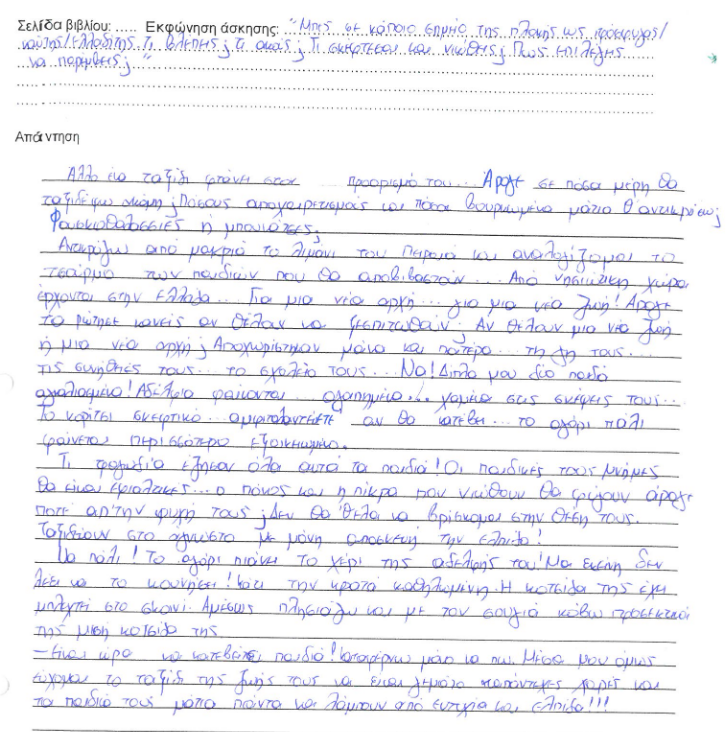 Σελίδα βιβλίου: ..... Εκφώνηση άσκησης: "Μπες σε κάποιο σημείο της πλοκής ως πρόσφυγας/
ναύτης/Ελλαδίτης. Τι βλέπεις; Τι ακούς; Τι σκέφτεσαι και νιώθεις; Πως επιλέγεις
να παρέμβεις;"
Απάντηση
Άλλο ένα ταξίδι φτάνει στον προορισμό του... Άραγε σε πόσα μέρη θα
ταξιδέψω ακόμη; Πόσους αποχαιρετισμούς και πόσα βουρκωμένα μάτια θ'αντικρύσω;
Φουσκοθαλασσιές ή μπουνάτσες;
Αντικρύζω από μακριά το λιμάνι του Πειραιά και αναλογίζομαι το
τσούρμο των παιδιών που θα αποβιβαστούν... Από νησιώτικη χώρα
έρχονται στην Ελλάδα... Για μια νέα αρχή... για μια νέα ζωή! Άραγε
τα ρώτησε κανείς αν θέλαν να ξεσπιτωθούν; Αν θέλαν μια νέα ζωή
ή μια νέα αρχή; Αποχωρίστηκαν μάνα και πατέρα... τη γη τους...
τις συνήθειές τους... το σχολείο τους... Να! Δίπλα μου δύο παιδιά
αγκαλιασμένα! Αδέλφια φαίνονται... αγαπημένα... χαμένα στις σκέψεις τους...
Το κορίτσι σκεφτικό... αμφιταλαντεύεται αν θα κατέβει... το αγόρι πάλι
φαίνεται περισσότερο εξοικειωμένο.
Τι τραγωδία έζησαν όλα αυτά τα παιδιά! Οι παιδικές τους μνήμες
θα είναι εφιαλτικές... ο πόνος και η πίκρα που νιώθουν θα φύγουν άραγε
ποτέ απ'την ψυχή τους; Δεν θα 'θελα να βρίσκομαι στην θέση τους.
Ταξιδεύουν στο άγνωστο με μόνη αποσκευή την ελπίδα!
Να πάλι! Το αγόρι πιάνει το χέρι της αδελφής του! Μα εκείνη δεν
λέει να το κουνήσει! Κάτι την κρατά καθηλωμένη. Η κοτσίδα της έχει
μπλεχτεί στο σκοινί. Αμέσως πλησιάζω και με τον σουγιά κόβω προσεκτικά
της μισή κοτσίδα της
– Είναι ώρα να κατεβείτε παιδιά! καταφέρνω μόνο να πω. Μέσα μου όμως
εύχομαι το ταξίδι της ζωής τους να είναι γεμάτο απάντεχες χαρές και
τα παιδικά τους μάτια πάντα να λάμπουν από ευτυχία και ελπίδα!!!